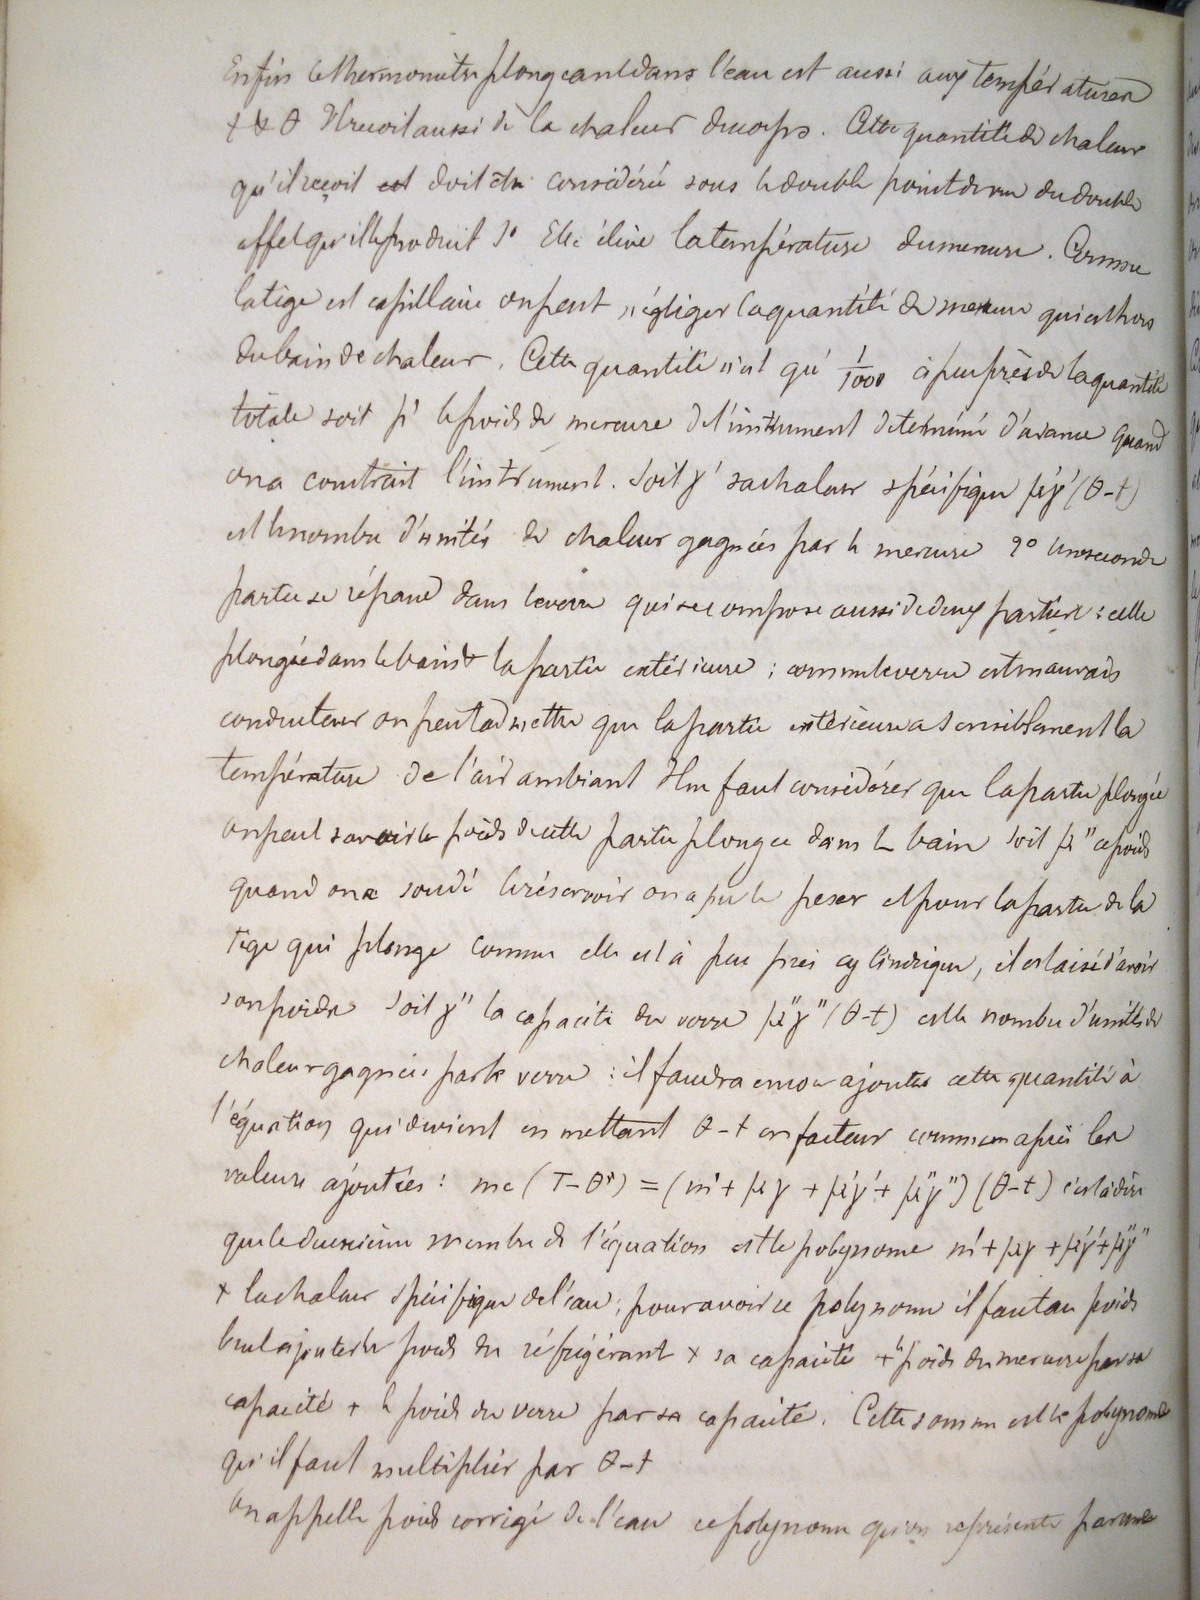 Enfin le thermomètre plongeant dans l'eau est aussi aux températures
t & θ Il reçoit aussi de la chaleur du corps. Cette quantité de chaleur
qu'il reçoit est doit être considérée sous le double point de vue du double
effet qu'il produit 1° Elle élève la température du mercure. Comme
la tige est capillaire on peut négliger la quantité de mercure qui est hors
du bain de chaleur. Cette quantité n'est qu' 1/1000 à peu près de la quantité
totale soit μ' le poids de mercure de l'instrument déterminé d'avance quand
on a construit l'instrument. Soit γ' sa chaleur spécifique μ'γ'(θ-t)
est le nombre d'unités de chaleur gagnées par le mercure 2° Une seconde
partie se répand dans le verre qui se compose aussi de deux parties : celle
plongée dans le bain et la partie extérieure ; comme le verre est mauvais
conducteur on peut admettre que la partie extérieure a sensiblement la
température de l'air ambiant Il ne faut considérer que la partie plongée
on peut savoir le poids de cette partie plongée dans le bain soit μ" ce poids
quand on a soudé le réservoir on a pu le peser et pour la partie de la
tige qui plonge comme elle est à peu près cylindrique, il est aisé d'avoir
son poids soit γ" la capacité du verre μ"γ"(θ-t) est le nombre d'unités de
chaleur gagnées par le verre : il faudra encore ajouter cette quantité à
l'équation qui devient en mettant θ-t en facteur commun après les
valeurs ajoutées : mc (T-θ) = (m'+ μγ + μ'γ' + μ"γ") (θ-t) c'est à dire
que le deuxième membre de l'équation est le polynome m'+μγ+μ'γ'+μ"γ"
× la chaleur spécifique de l'eau ; pour avoir ce polynome il faut au poids
ajouter le poids du réfrigérant × sa capacité + le poids du mercure par sa
capacité + le poids du verre par sa capacité. Cette somme est le polynome
qu'il faut multiplier par θ-t
On appelle poids corrigé de l'eau ce polynome qu'on représente par